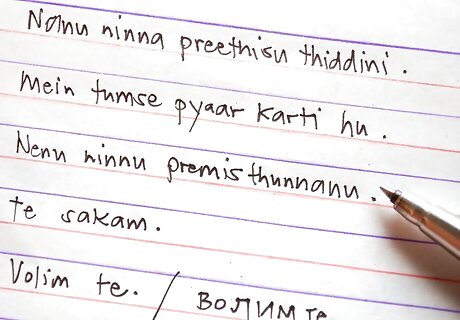 Nanu ninna preethisu thiddini.
Mein tumse pyaar karti hu.
Nenu ninnu premisthunnanu.
Te sakam.
Volim te. / волим те